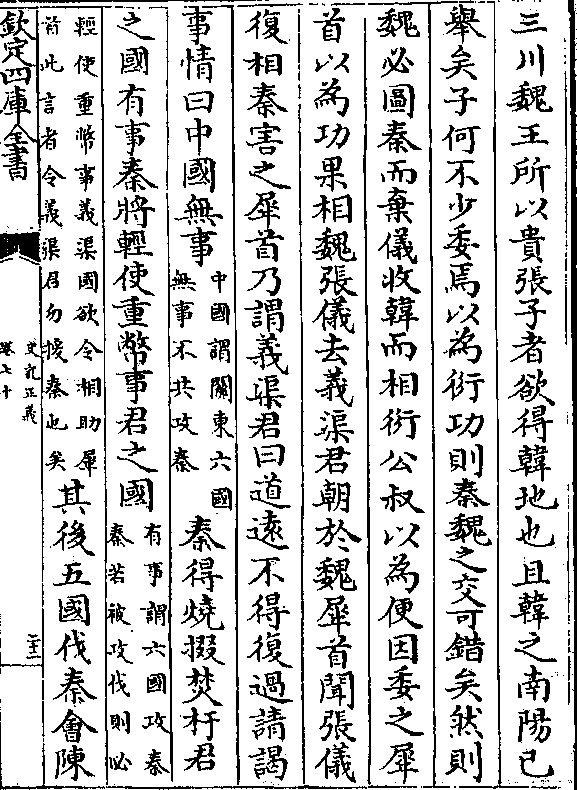 三川魏王所以貴張子者欲得韓地也且韓之南陽已
舉矣子何不少委焉以為衍功則秦魏之交可錯矣然則
魏必圖秦而棄儀收韓而相衍公叔以為便因委之犀
首以為功果相魏張儀去義渠君朝於魏犀首聞張儀
復相秦害之犀首乃謂義渠君曰道逺不得復過請謁
事情曰中國無事
中國謂關東六國
無事不共攻秦
秦得燒掇焚杅君
之國有事秦將輕使重幣事君之國
有事謂六國攻秦
秦若被攻伐則必
輕使重幣事義渠國欲令相助犀
首此言者令義渠君勿援秦也矣
其後五國伐秦會陳
欽定四庫全書
史記正義
卷七十